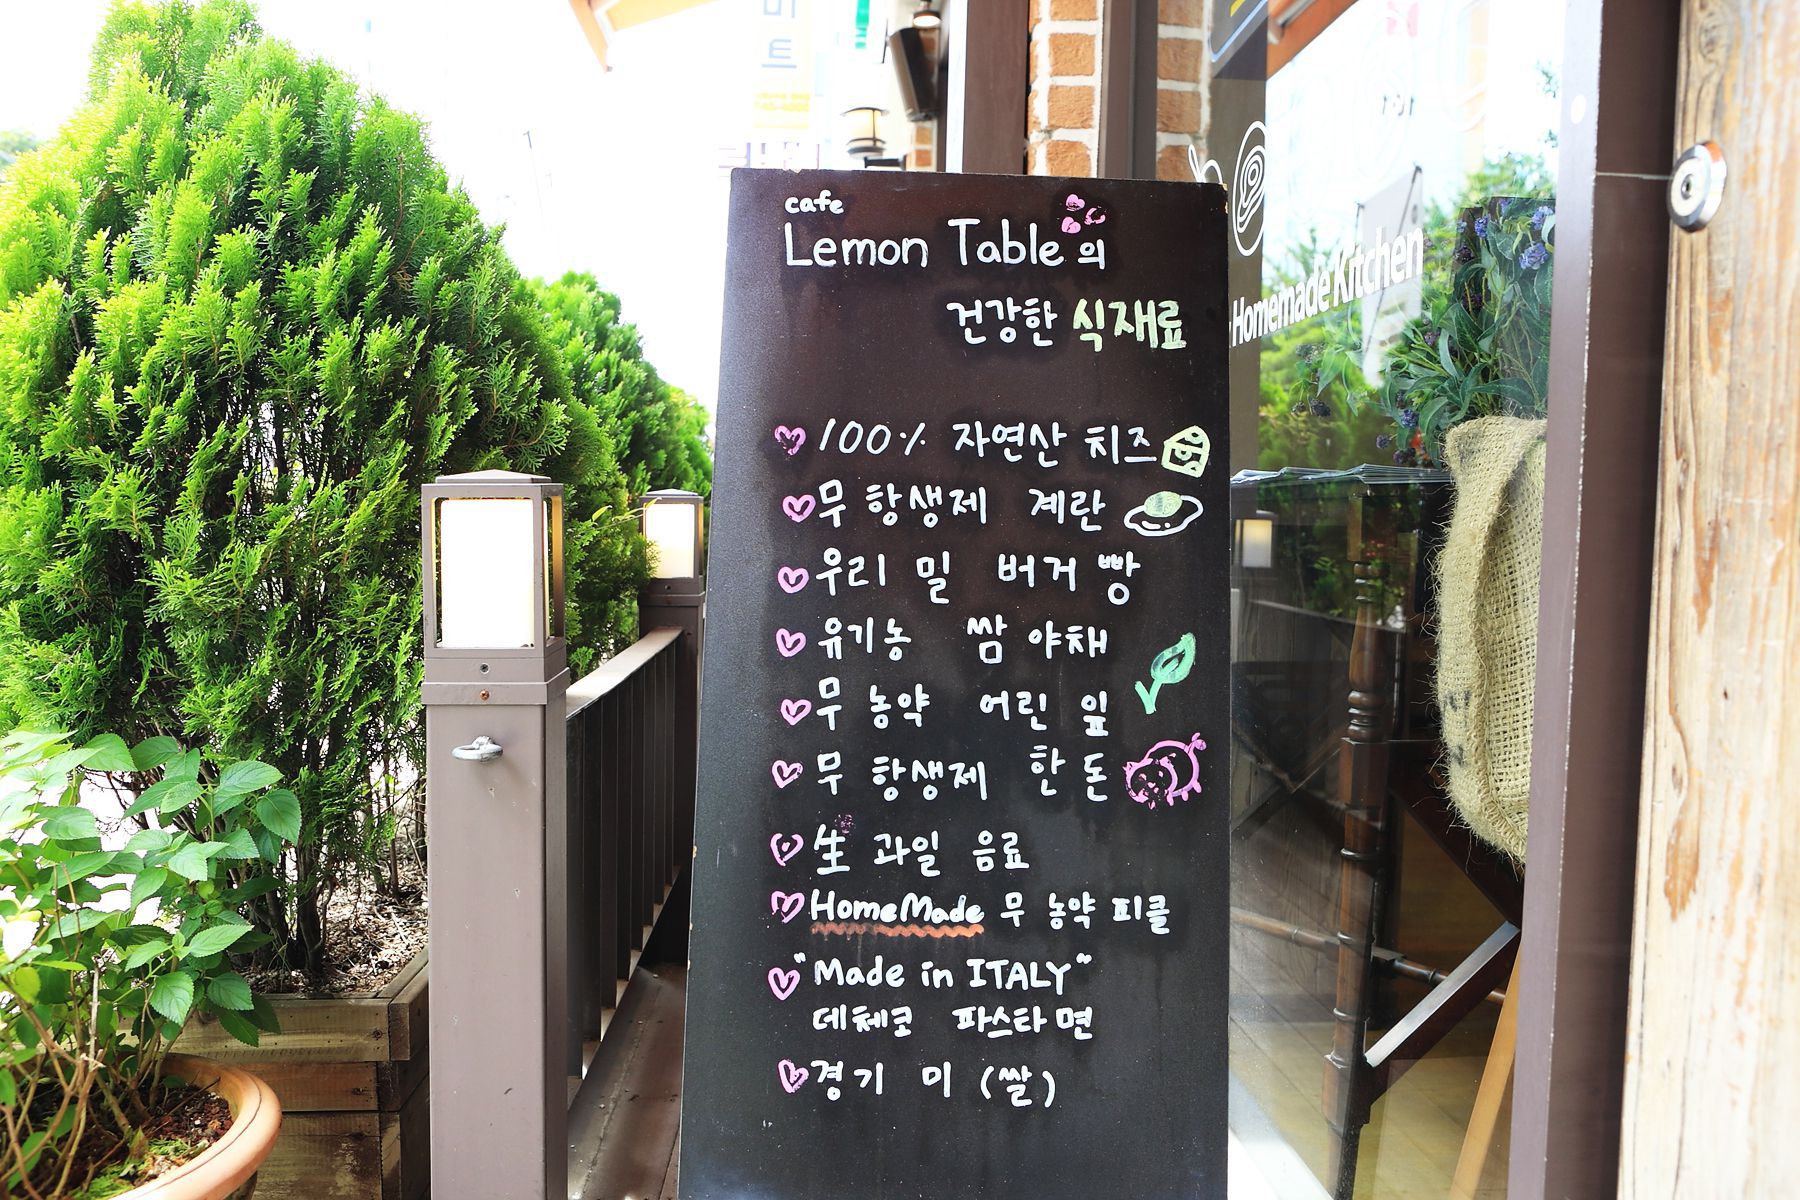 cafe
Lemon Table의
건강한 식재료
100% 자연산 치즈
무 항생제 계란
우리 밀 버거 빵
유기농 쌈 야채
무 농약 어린 잎
무 항생제 한 돈
生 과일 음료
HomeMade 무 농약 피클
"Made in ITALY"
데체코 파스타 면
경기 미 (쌀)
Homemade Kitchen